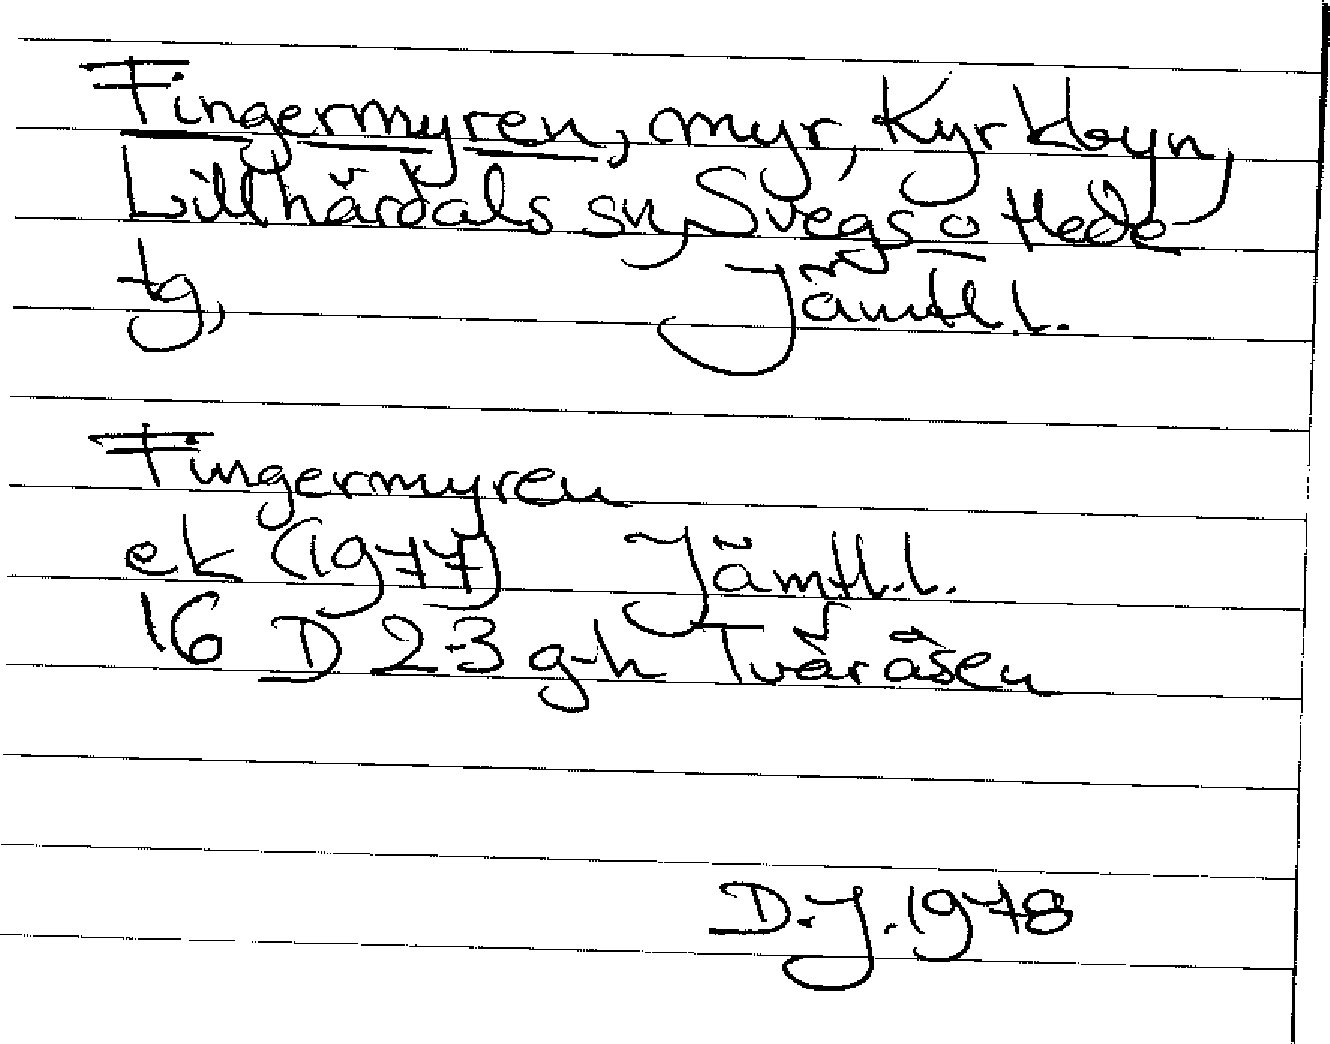 Fingermyren, myr, Kyrkbyn,
Lillhärdals sn, Svegs o Hede
tg, Jämtl.l.
Fingermyren
ek (1977) Jämtl.l.
16 D 2-3 g-h Tväråsen
D.J. 1978